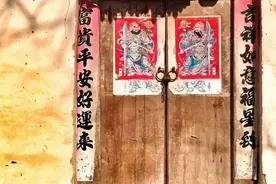 吉祥如意福星到
富貴平安好運来